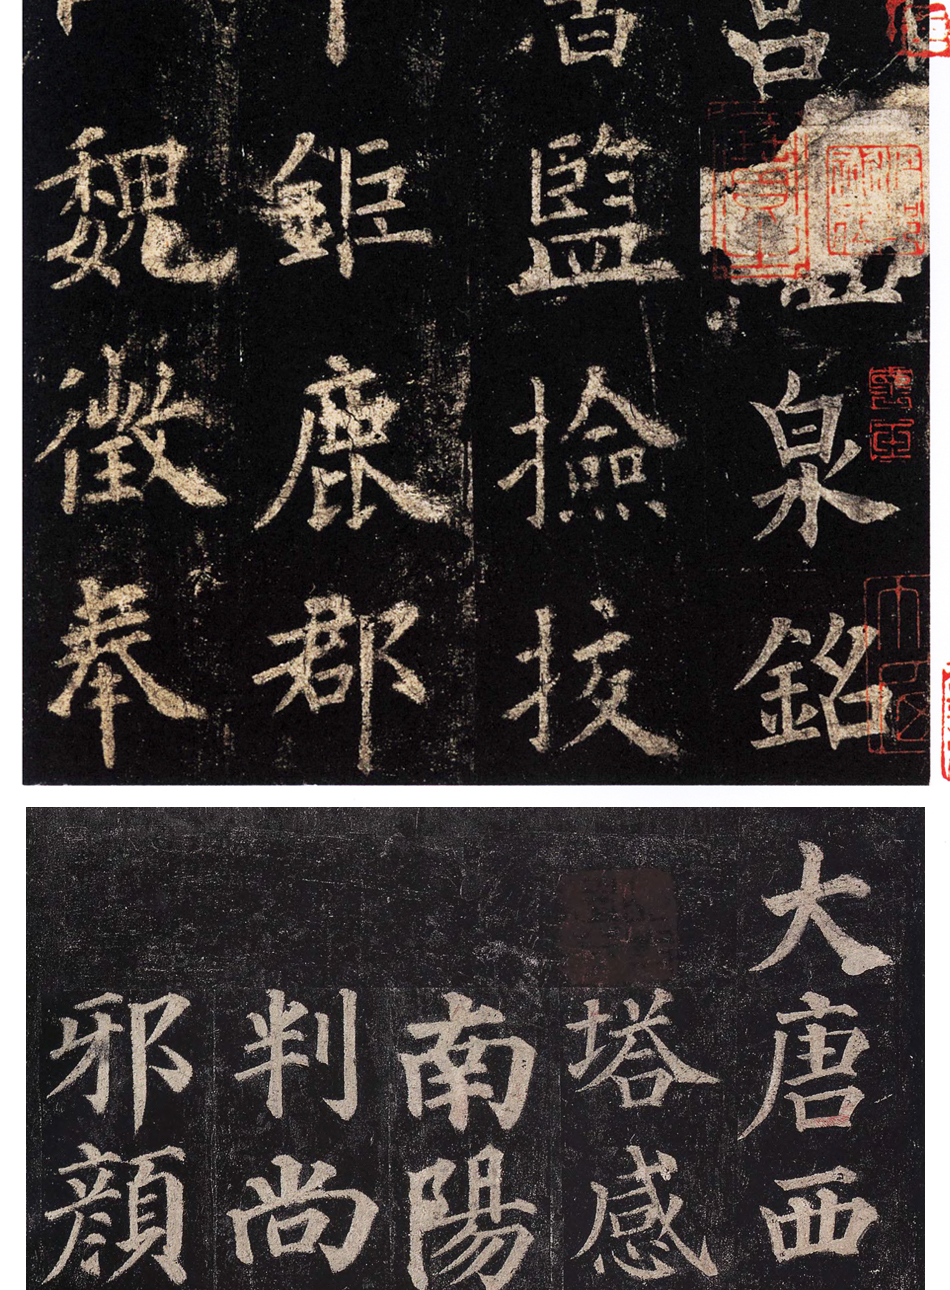 泉銘
監撿挍
鉅鹿郡
魏徵奉
大唐西
塔感
南陽
判尚
邪顏